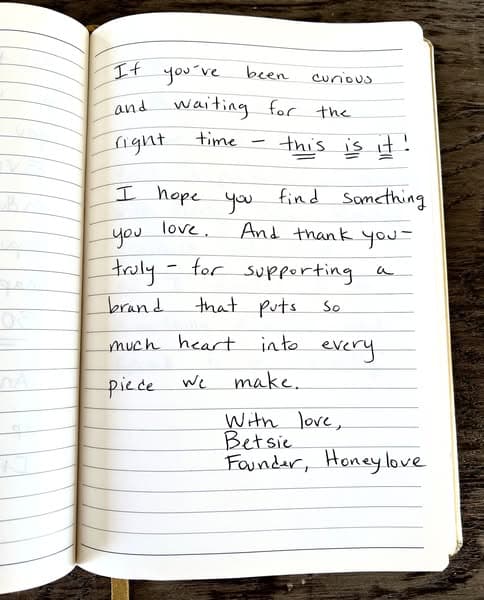 If you've been curious
and waiting for the
right time - this is it!
I hope you find something
you love. And thank you-
truly - for supporting a
brand that puts so
much heart into every
piece we make.
With love,
Betsie
Founder, Honeylove